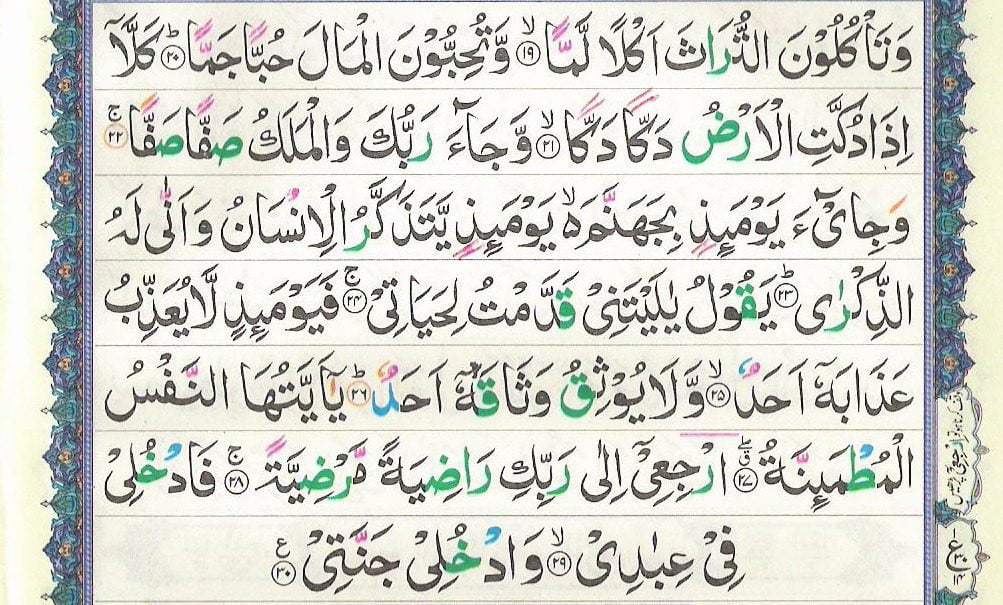 وَتَاْكُلُوْنَ التُّرَاثَ اَكْلًا لَّمًّاۙ ۝۱۹ وَّتُحِبُّوْنَ الْمَالَ حُبًّا جَمًّاؕ ۝۲۰ كَلَّاۤ
اِذَا دُكَّتِ الْاَرْضُ دَكًّا دَكًّاۙ ۝۲۱ وَّجَآءَ رَبُّكَ وَالْمَلَكُ صَفًّا صَفًّاۚ ۝۲۲
وَجِایْٓءَ يَوْمَىِٕذٍۭ بِجَهَنَّمَ ۙ۬ يَوْمَىِٕذٍ يَّتَذَكَّرُ الْاِنْسَانُ وَاَنّٰى لَهُ
الذِّكْرٰىؕ ۝۲۳ يَقُوْلُ يٰلَيْتَنِیْ قَدَّمْتُ لِحَيَاتِیْۚ ۝۲۴ فَيَوْمَىِٕذٍ لَّا يُعَذِّبُ
عَذَابَهٗۤ اَحَدٌۙ ۝۲۵ وَّلَا يُوْثِقُ وَثَاقَهٗۤ اَحَدٌؕ ۝۲۶ يٰۤاَيَّتُهَا النَّفْسُ
الْمُطْمَىِٕنَّةُ ۝۲۷ ارْجِعِیْۤ اِلٰى رَبِّكِ رَاضِيَةً مَّرْضِيَّةًۚ ۝۲۸ فَادْخُلِیْ
فِیْ عِبٰدِیْۙ ۝۲۹ وَادْخُلِیْ جَنَّتِیْ ۝۳۰
ع
۳۰